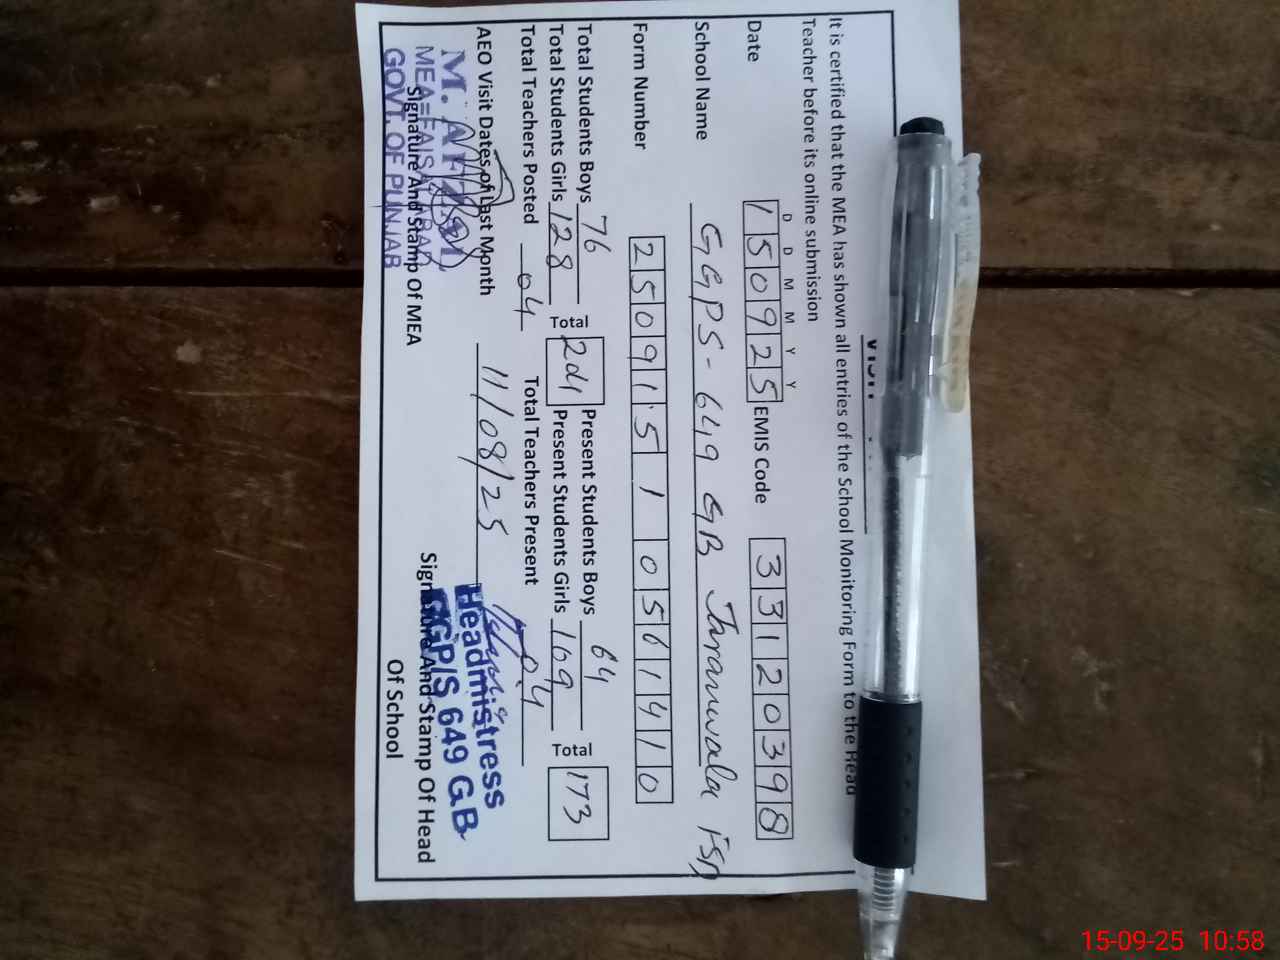 It is certified that the MEA has shown all entries of the School Monitoring Form to the Head
Teacher before its online submission
D D M M Y Y
Date 150925 EMIS Code 33120398
School Name GGPS-649 GB Jaranwala FSD
Form Number 2509151 0561410
Total Students Boys 76 Present Students Boys 64
Total Students Girls 128 Total Present Students Girls 109 Total 173
Total Teachers Posted 04 Total Teachers Present 04
AEO Visit Dates of Last Month 11/08/25
MEA=FAISALABAD
GOVT. OF PUNJAB
Signature And Stamp Of MEA
Headmistress
GGP/S 649 G.B
Signature And Stamp Of Head
Of School
15-09-25 10:58